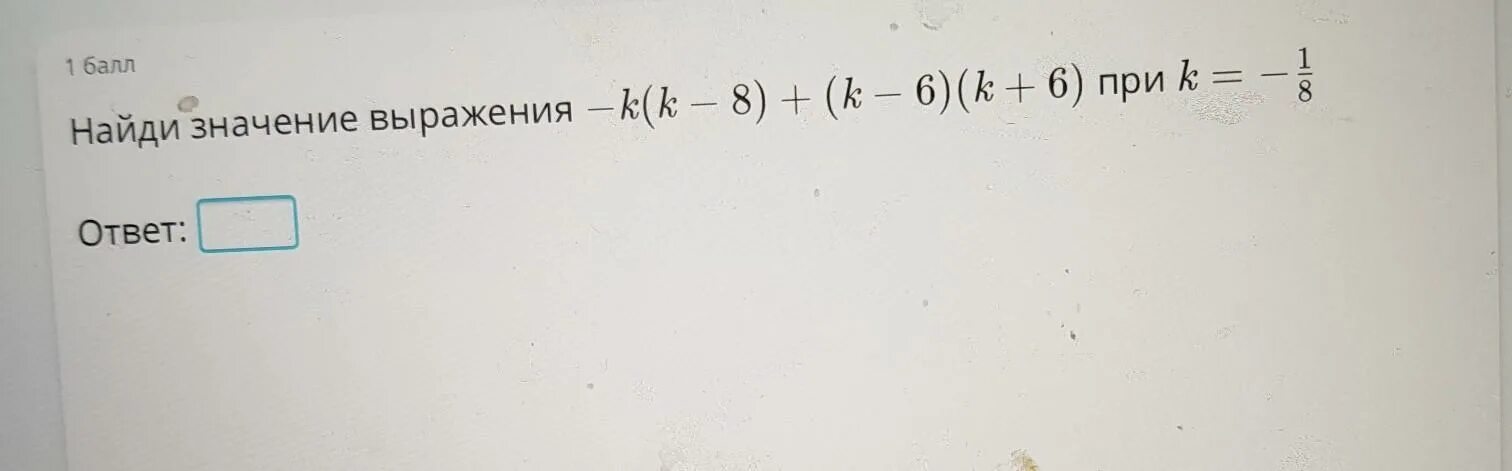 1 балл
Найди значение выражения −k(k − 8) + (k − 6)(k + 6) при k = −1/8
Ответ: